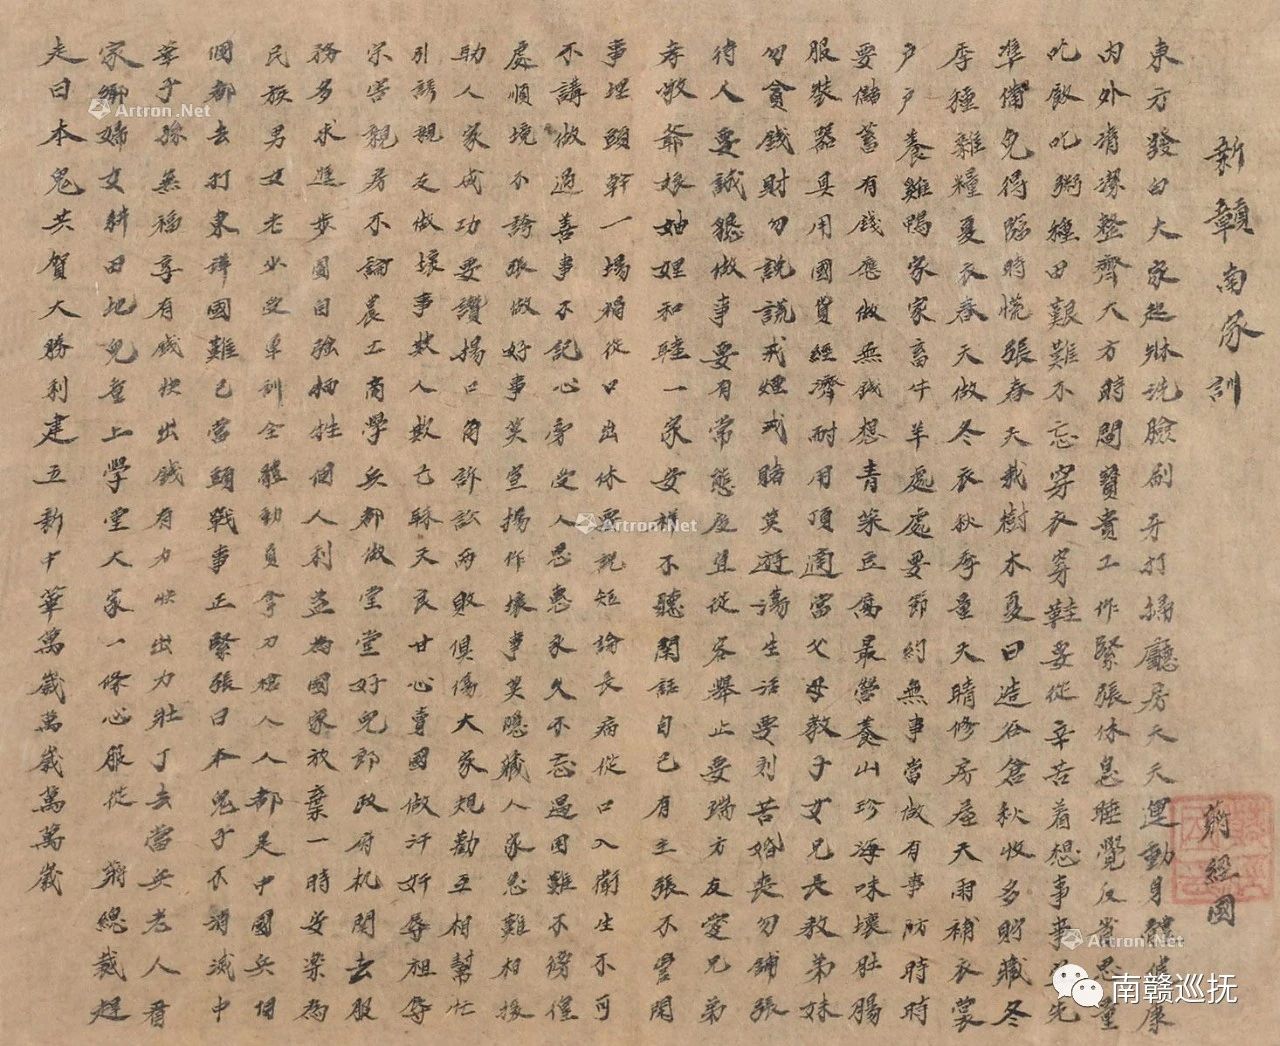 新贛南家訓
蔣經國
東方發白大家起牀洗臉刷牙打掃廳房天天運動身體健康
內外清潔整齊大方時間寶貴工作緊張休息睡覺反省思量
吃飯吃粥種田艱難不忘穿衣穿鞋要從辛苦着想事事先
準備免得臨時慌張春天栽樹木夏日造谷倉秋收多貯藏冬
季種雜糧夏衣春天做冬衣秋季量天晴修房屋天雨補衣裳
戶戶養雞鴨家家畜牛羊處處要節約無事當做有事防時時
要儲蓄有錢應做無錢想青菜豆腐最營養山珍海味壞肚腸
服裝器具用國貨經濟耐用頂適當父母教子女兄長教弟妹
勿貪錢財勿說謊戒煙戒賭莫遊蕩生活要刻苦婚喪勿鋪張
待人要誠懇做事要有常態度且從容舉止要端方友愛兄弟
孝敬爺娘妯娌和睦一家安樣不聽閒話自己有主張不管閒
事埋頭幹一場禍從口出休要說短論長病從口入衛生不可
不講做過善事不記心旁受人恩惠永久不忘遇困難不徬徨
處順境不誇張做好事莫宣揚作壞事莫隱藏人家急難相援
助人家成功要讚揚口角訴訟兩敗俱傷大家規勸互相幫忙
引誘親友做壞事欺人欺己縣天良甘心賣國做汗奸辱祖辱
宗害親房不論農工商學兵都做堂堂好兒郎政府机関去服
務多求進步圖自強犧牲個人利益為國家放棄一時安樂為
民族男女老少受軍訓全體動員拿刀槍人人都是中國兵個
個都去打東洋國難已當頭戰事正緊張日本鬼子不消滅中
華子孫無福享有錢快出錢有力快出力壯丁去當兵老人看
家鄉婦女耕田地兒童上學堂大家一條心服從 蔣總裁趕
走日本鬼共賀大勝利建立新中華萬歲萬歲萬萬歲
Artron.Net
Artron.Net
Artron.Net
Artron.Net
南赣巡抚